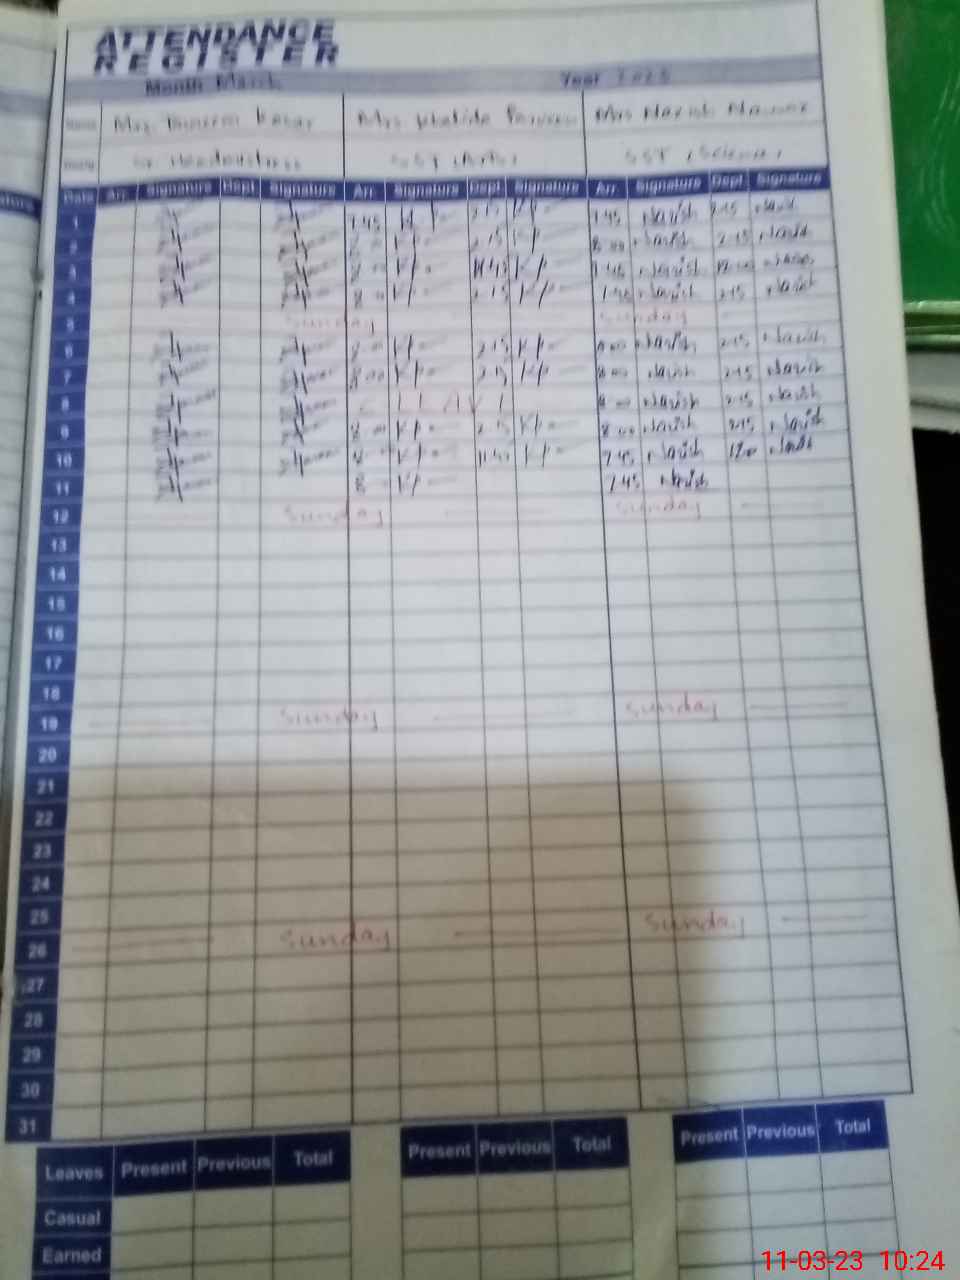 ATTENDANCE
REGISTER
Month March Year 2023
Name Mrs. Kosar Mrs. Khalida Parveen Mrs Navish
Sr. Headmistress SST (Arts) SST (Science)
Date Arr. Signature Dept. Signature Arr. Signature Dept. Signature Arr. Signature Dept. Signature
1 7.45 KP 2.15 KP 7.45 Navish 2.15 Navish
2 8.00 KP 2.15 KP 8.00 Navish 2.15 Navish
3 8.00 KP KP 7.45 Navish 12.00
4 8.00 KP 2.15 KP Navish 2.15 Navish
5 Sunday Sunday
6 8.00 KP 2.15 KP 8.00 Navish 2.15 Navish
7 8.00 KP 2.15 KP 8.00 Navish 2.15 Navish
8 LEAVE 8.00 Navish 2.15 Navish
9 8.00 KP 2.15 KP 8.00 Navish 2.15 Navish
10 8 KP KP 7.45 Navish Navish
11 8 KP 7.45 Navish
12 Sunday Sunday
13
14
15
16
17
18
19 Sunday Sunday
20
21
22
23
24
25
26 Sunday Sunday
27
28
29
30
31
Leaves Present Previous Total Present Previous Total Present Previous Total
Casual
Earned
11-03-23 10:24